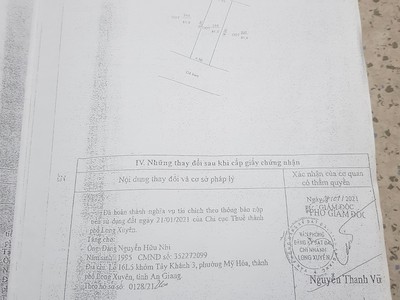 IV. Những thay đổi sau khi cấp giấy chứng nhận
Nội dung thay đổi và cơ sở pháp lý
Xác nhận của cơ quan
có thẩm quyền
Đã hoàn thành nghĩa vụ tài chính theo thông báo nộp
tiền sử dụng đất ngày 21/01/2021 của Chi cục Thuế thành
phố Long Xuyên.
Tặng cho:
Ông: Đặng Nguyễn Hữu Nhi
Năm sinh: 1995 CMND số: 352272099
Địa chỉ: Lô 16L5 khóm Tây Khánh 3, phường Mỹ Hòa, thành
phố Long Xuyên, tỉnh An Giang
Theo hồ sơ số 0128/21
Ngày /2021
GIÁM ĐỐC
PHÓ GIÁM ĐỐC
VĂN PHÒNG
ĐĂNG KÝ ĐẤT ĐAI
CHI NHÁNH
LONG XUYÊN
Nguyễn Thanh Vũ